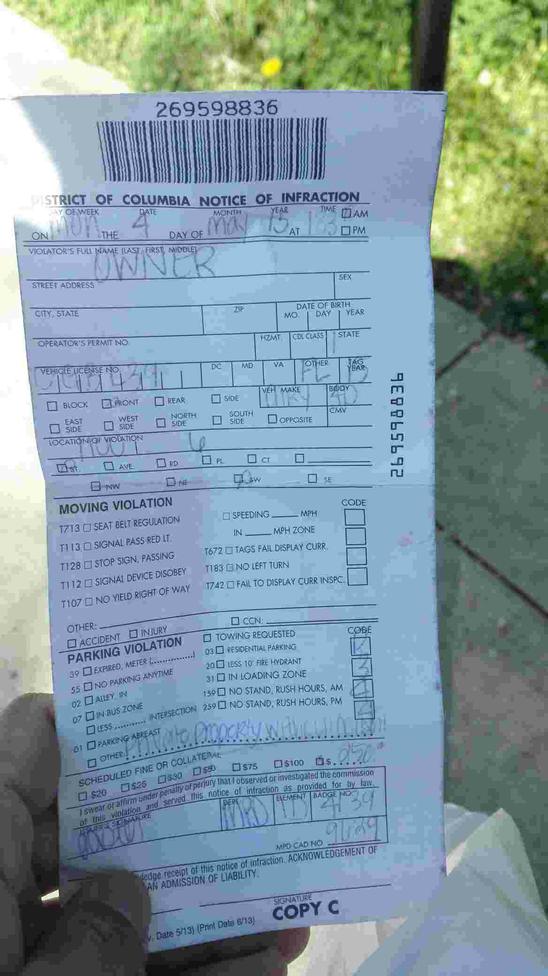 269598836
DISTRICT OF COLUMBIA NOTICE OF INFRACTION
DAY OF WEEK DATE MONTH YEAR TIME AM
ON Mon THE 4 DAY OF May 15 AT PM
VIOLATOR'S FULL NAME (LAST, FIRST, MIDDLE)
OWNER
STREET ADDRESS SEX
CITY, STATE ZIP DATE OF BIRTH
MO. DAY YEAR
OPERATOR'S PERMIT NO. HZMT. CDL CLASS STATE
VEHICLE LICENSE NO. DC MD VA OTHER TAG YEAR
BLOCK FRONT REAR SIDE VEH MAKE BODY
4D
EAST SIDE WEST SIDE NORTH SIDE SOUTH SIDE OPPOSITE CMV
LOCATION OF VIOLATION
ST. AVE. RD PL. CT
NW NE SW SE
269598836
MOVING VIOLATION CODE
T713 SEAT BELT REGULATION SPEEDING MPH
T113 SIGNAL PASS RED LT. IN MPH ZONE
T128 STOP SIGN, PASSING T672 TAGS FAIL DISPLAY CURR.
T112 SIGNAL DEVICE DISOBEY T183 NO LEFT TURN
T107 NO YIELD RIGHT OF WAY T742 FAIL TO DISPLAY CURR INSPC.
OTHER: CCN:
ACCIDENT INJURY TOWING REQUESTED CODE
PARKING VIOLATION 03 RESIDENTIAL PARKING
39 EXPIRED, METER 20 LESS 10' FIRE HYDRANT
55 NO PARKING ANYTIME 31 IN LOADING ZONE
02 ALLEY, IN 159 NO STAND, RUSH HOURS, AM
07 IN BUS ZONE 259 NO STAND, RUSH HOURS, PM
LESS INTERSECTION
01 PARKING ABREAST
OTHER: Private property
SCHEDULED FINE OR COLLATERAL
$20 $25 $30 $50 $75 $100 $ 250
I swear or affirm under penalty of perjury that I observed or investigated the commission
of this violation and served this notice of infraction as provided for by law.
SIGNATURE DEPT. ELEMENT BADGE NO.
MPD 1D 4739
MPD CAD NO.
receipt of this notice of infraction. ACKNOWLEDGEMENT OF
AN ADMISSION OF LIABILITY.
SIGNATURE
COPY C
Date 5/13) (Print Date 6/13)